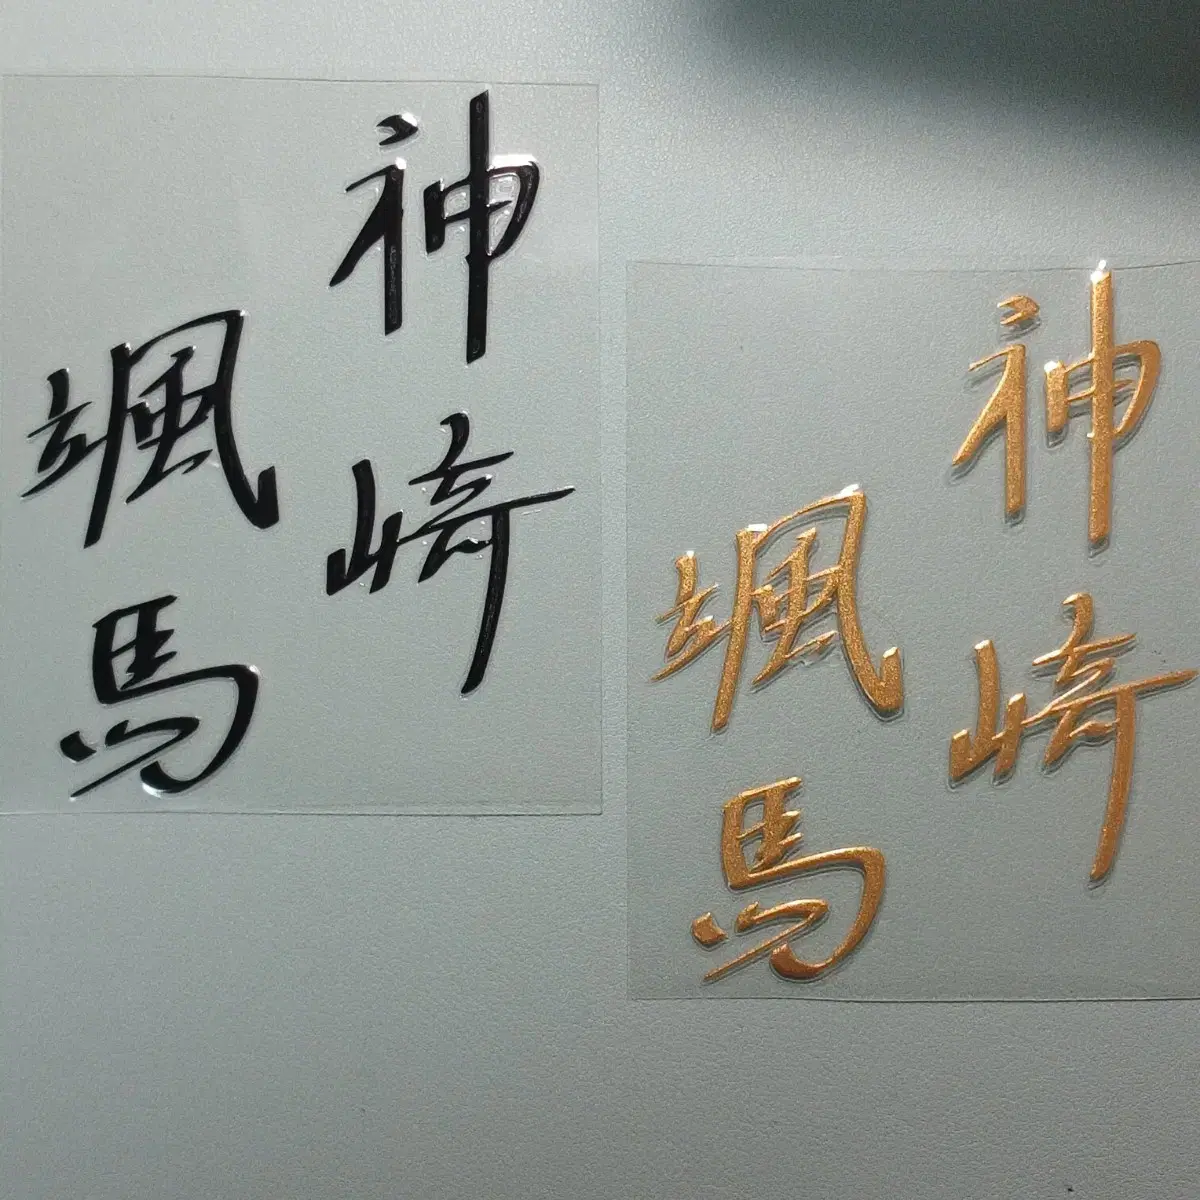 神崎
颯馬
神崎
颯馬